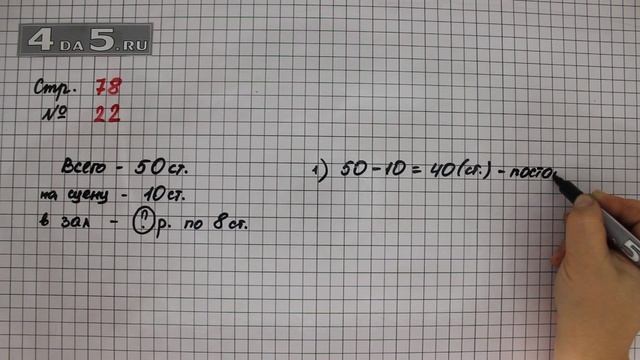 4 DA 5.RU
Стр. 78
№ 22
Всего - 50 ст.
на сцену - 10 ст.
в зал - ? р. по 8 ст.
1) 50 - 10 = 40 (ст.) - посто